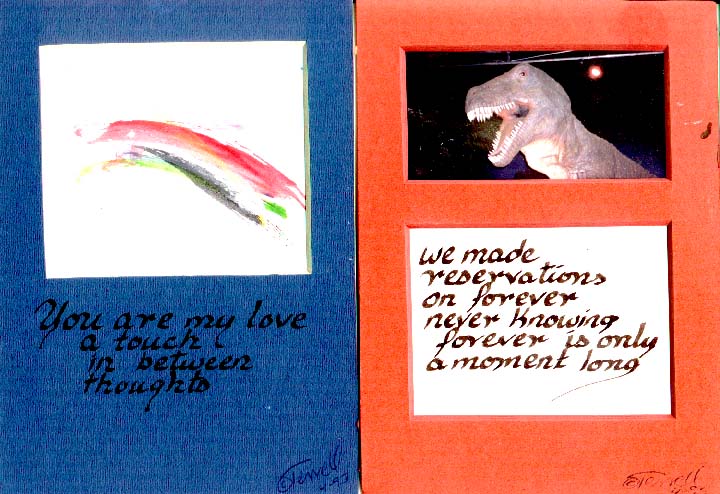 You are my love
a touch
in between
thoughts
we made
reservations
on forever
never knowing
forever is only
a moment long